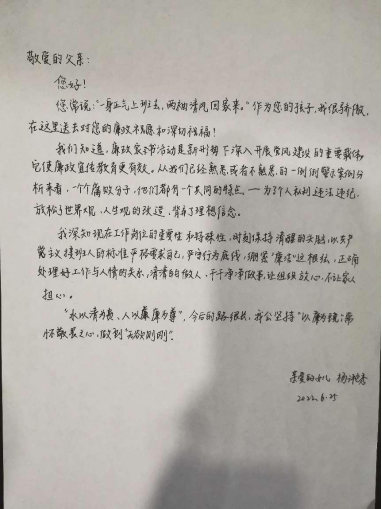 敬爱的父亲：
您好！
您常说："一身正气上班去，两袖清风回家来。"作为您的孩子，我很骄傲，
在这里送去对您的廉政祝愿和深切祝福！
我们知道，廉政家书活动是新形势下深入开展党风建设的重要载体，
它使廉政宣传教育更有效。从我们已经熟悉或者不熟悉的一例例警示案例分
析来看，一个个腐败分子，他们都有一个共同的特点——为了个人私利违法违纪，
放松了世界观、人生观的改造，背弃了理想信念。
我深知现在工作岗位的重要性和特殊性，时刻保持清醒的头脑，以共产
党主义接班人的标准严格要求自己，严守行为底线，绷紧"廉洁"这根弦，正确
处理好工作与人情的关系，清清白白做人，干干净净做事，让组织放心，不让家人
担心。
"水以清为贵，人以廉为尊"，今后的路很长，我会坚持"以廉为镜"，常
怀敬畏之心，做到"无欲则刚"。
亲爱的女儿 杨
2022.6.25